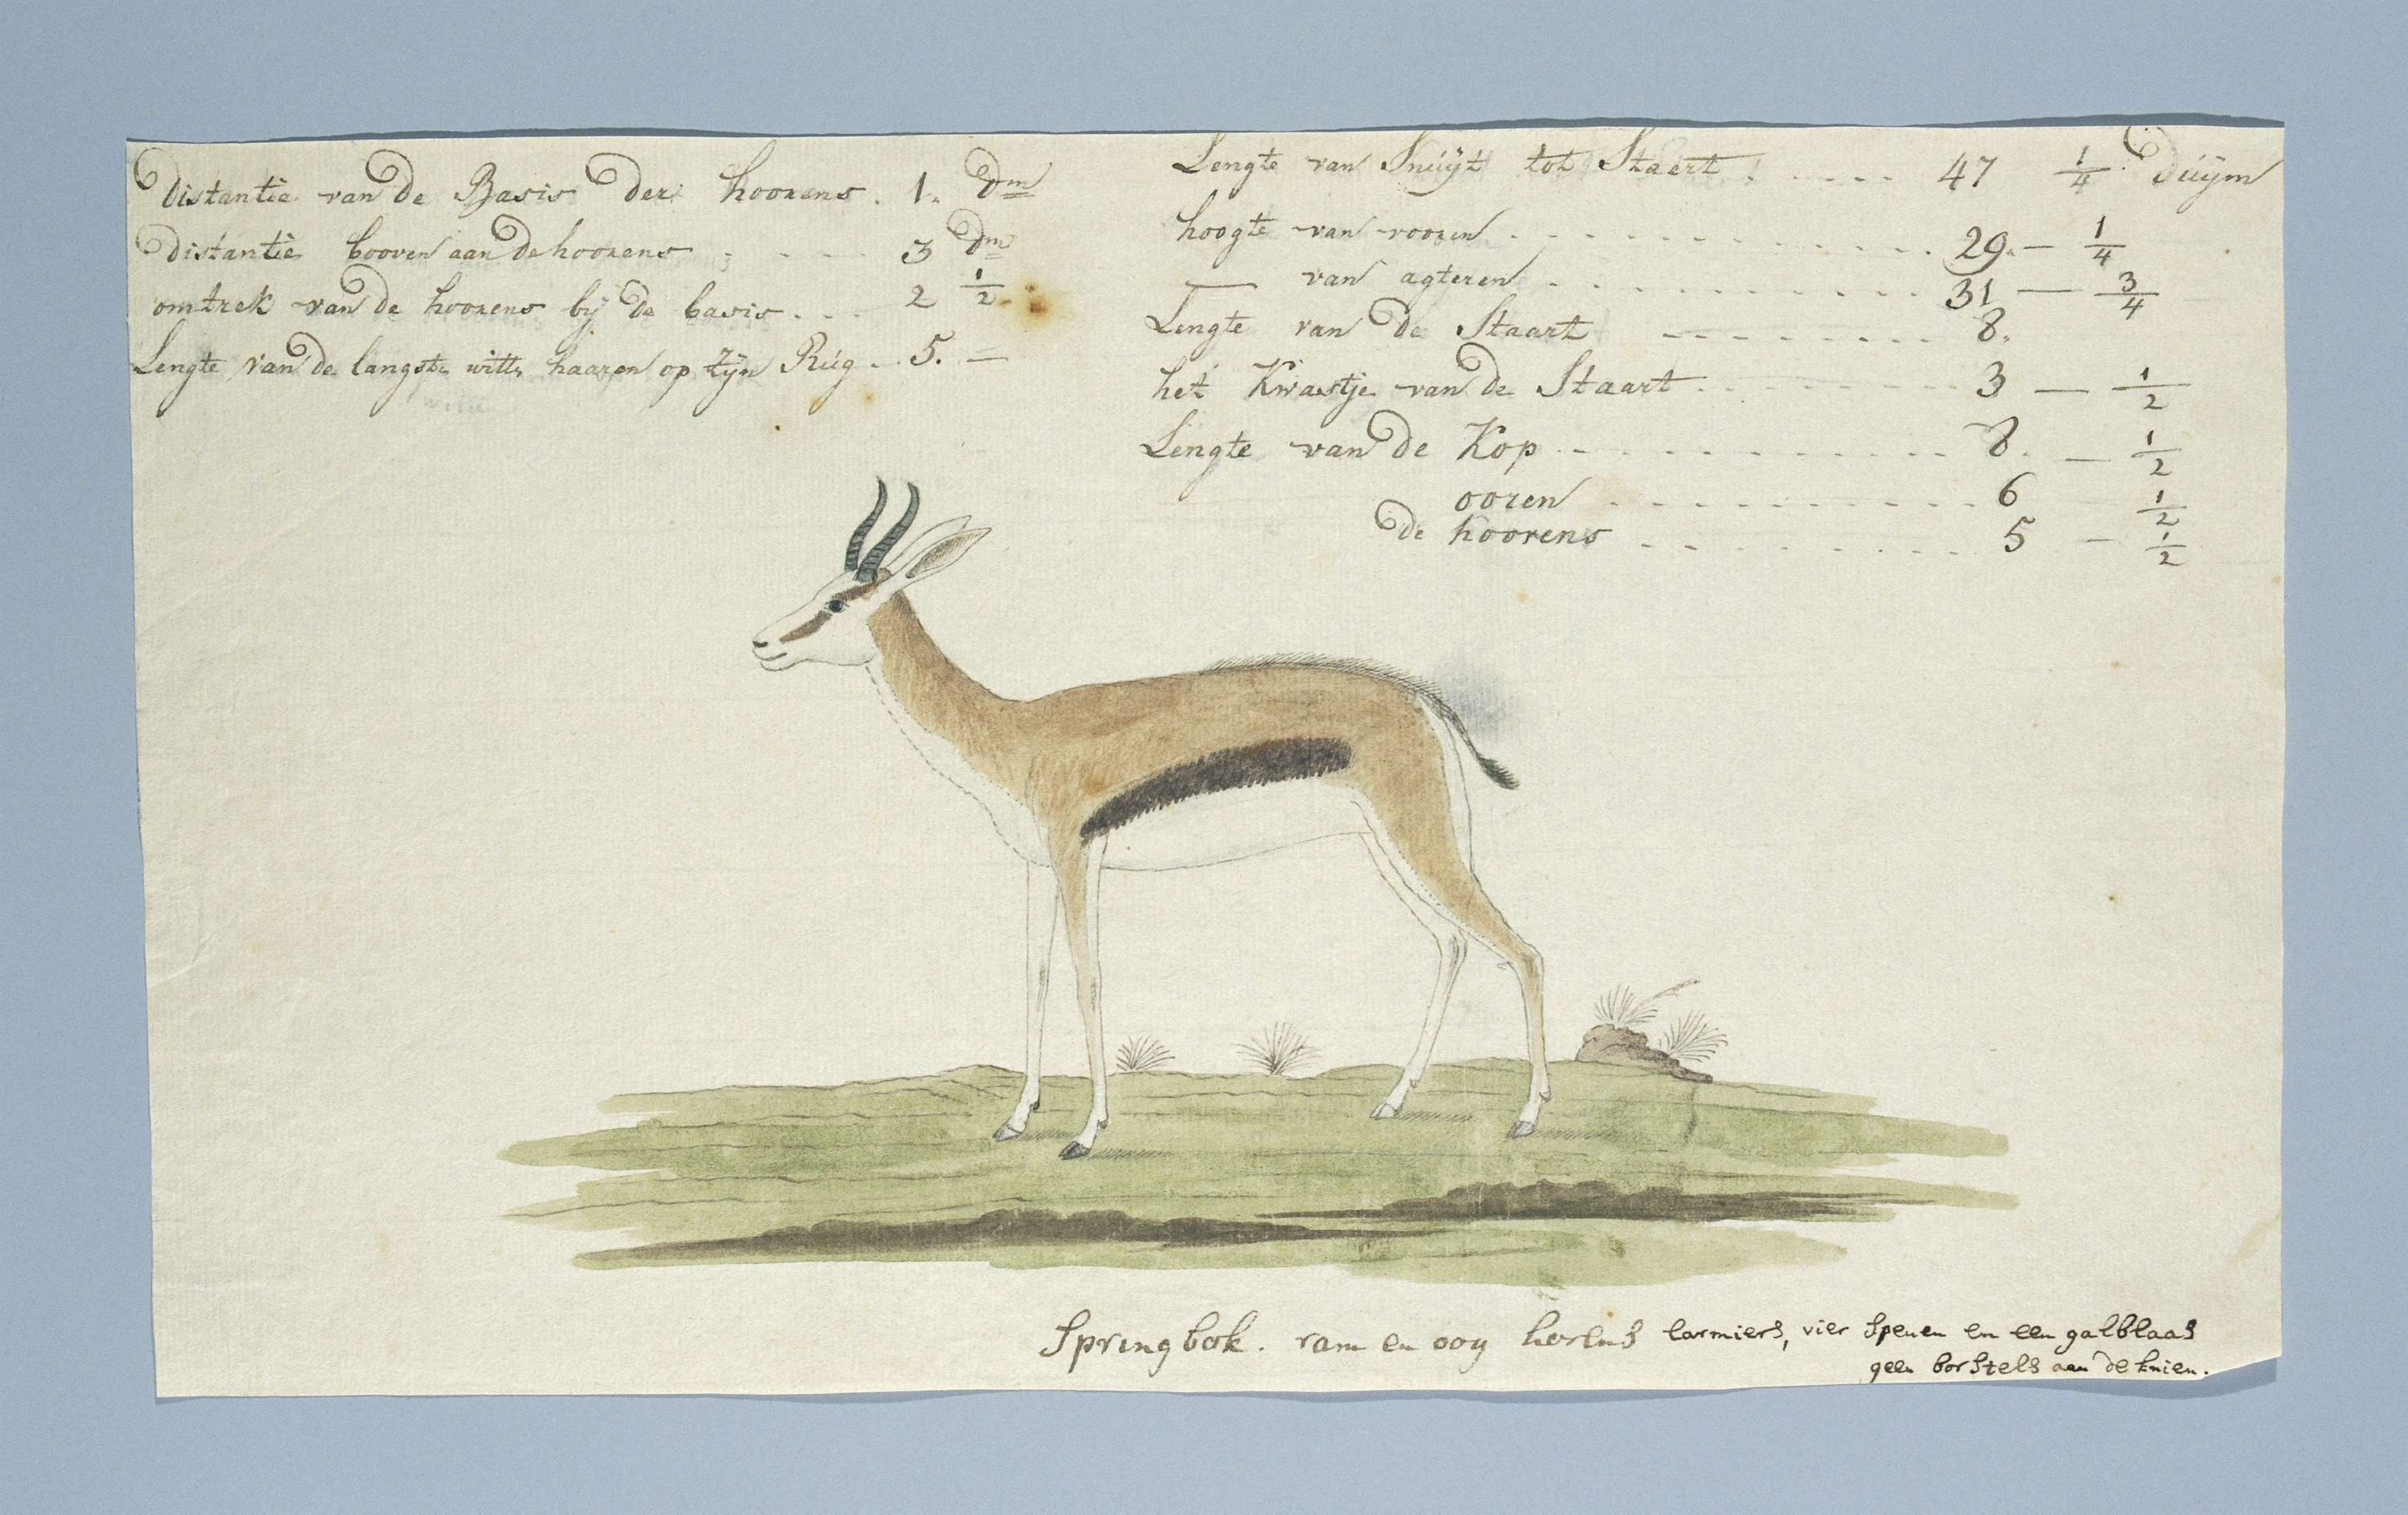 Distantie van de Basis der hoorens. 1. Dm
Distantie booven aan de hoorens - - - - 3 Dm
omtrek van de hoorens bij de basis . . . 2 1/2
Lengte van de langste witte haaren op zijn Rúg . . 5. —
Lengte van Snúÿt tot Staert . . . . . 47 1/4 Dúÿm
hoogte van vooren . . . . . . . . . . . . 29. — 1/4
— van agteren . . . . . . . . . . 31 — 3/4
Lengte van de Staart - - - - - - - - 8.
het Kwastje van de Staart . - - - - - - - 3 — 1/2
Lengte van de Kop . - - - - - - - - - - - 8. — 1/2
ooren . - - - - - - - - - 6 1/2
de hoorens - - - - - - - - - 5 — 1/2
Springbok. ram en ooy horens larmiers, vier Spenen en een galblaas
geen borstels aan de knien.